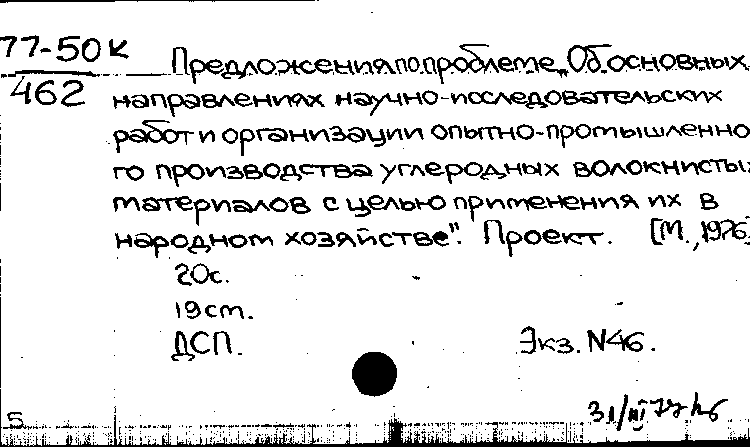 77-50к
462
Предложения по проблеме „Об основных
направлениях научно-исследовательских
работ и организации опытно-промышленно
го производства углеродных волокнистых
материалов с целью применения их в
народном хозяйстве". Проект. [М., 1976]
20с.
19см.
ДСП. Экз. N46.
31/III 77
5